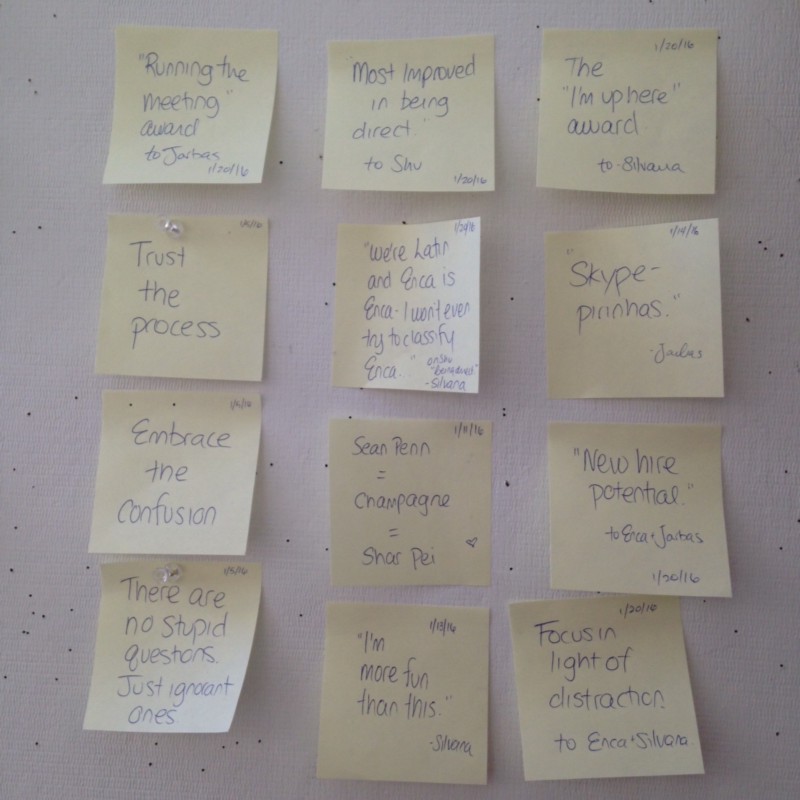 "Running the
meeting"
award
to Jarbas
1/20/16
"Most Improved
in being
direct."
to Shu
1/20/16
1/20/16
The
"I'm up here"
award
to Silvana
Trust
the
process
1/20/16
"We're Latin
and Erica is
Erica - I won't even
try to classify
Erica."
on Shu
-Silvana
1/14/16
"Skype-
pirinhas."
-Jarbas
Embrace
the
confusion
1/11/16
Sean Penn
=
Champagne
=
Shar Pei
"New hire
potential."
to Erica + Jarbas
1/20/16
There are
no stupid
questions.
Just ignorant
ones
1/13/16
"I'm
more fun
than this."
-Silvana
1/20/16
Focus in
light of
distraction
to Erica + Silvana